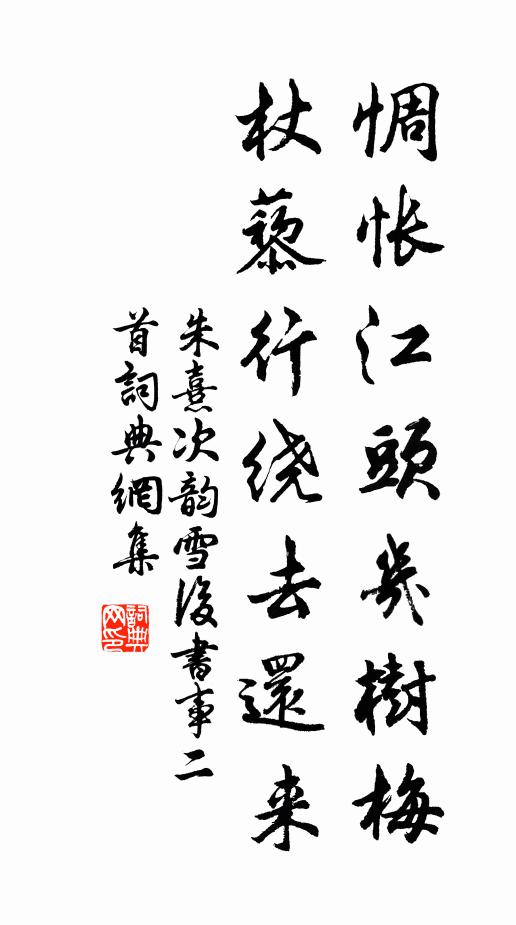 惆怅江頭幾樹梅
杖藜行绕去還来
朱熹次韵雪後書事二
首詞典網集
詞典
网印